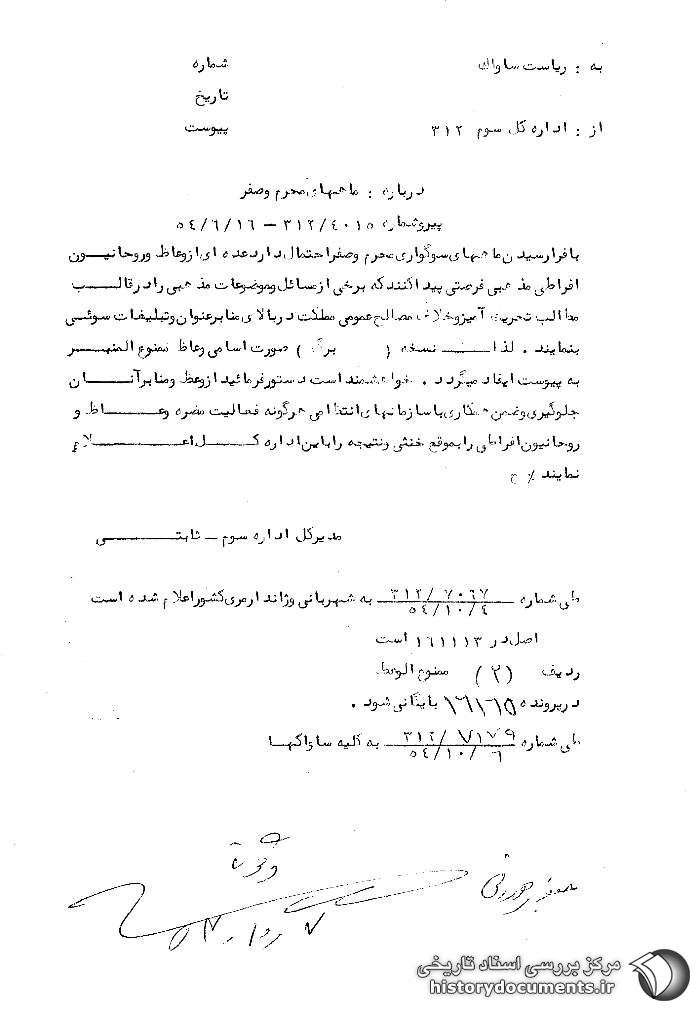 به : ریاست ساواک
شماره
تاریخ
از : اداره کل سوم ۳۱۲
پیوست
درباره : ماههای محرم وصفر
پیروشماره ۳۱۲/۴۰۱۵ – ۵۴/۶/۱۶
بافرارسیدن ماههای سوگواری محرم وصفراحتمال دارد عده ای ازوعاظ وروحانیـــون
افراطی مذهبی فرصتی پیداکنندکه برخی ازمسائل وموضوعات مذهبی رادرقالـــب
مطالب تحریک آمیزوخلاف مصالح عمومی مملکت دربالای منابرعنوان وتبلیغات سوئــی
بنمایند . لذا نسخه ( برگ ) صورت اسامی وعاظ ممنوع المنبـــر
به پیوست ایفاد میگردد . خواهشمند است دستورفرمائید ازوعظ ومنابرآنـــان
جلوگیری وضمن همکاری باسازمانهای انتظامی هرگونه فعالیت مضره وعـــاظ و
روحانیون افراطی رابموقع خنثی ونتیجه راباین اداره کـــل اعـــلام
نمایند ٪ ح
مدیرکل اداره سوم – ثابتـــی
طی شماره ۳۱۲/۷۰۶۷ به شهربانی وژاندارمری کشوراعلام شده است
۵۴/۱۰/۴
اصل در ۱۶۱۱۱۳ است
ردیف (۲) ممنوع الوعظ
درپرونده ۱۶۱۶۵ بایگانی شود .
طی شماره ۳۱۲/۷۱۷۹ به کلیه ساواکها
۵۴/۱۰/۶
مرکز بررسی اسناد تاریخی
historydocuments.ir